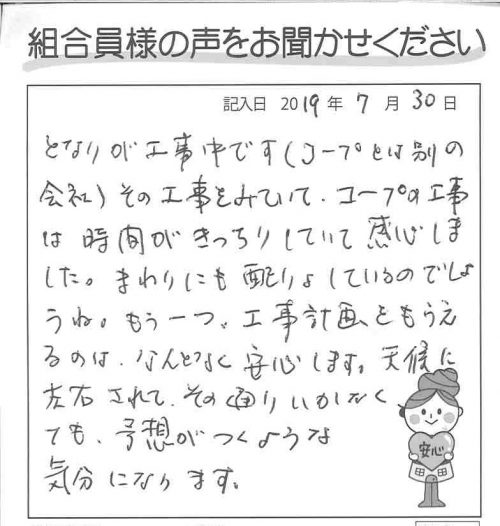 組合員様の声をお聞かせください
記入日 2019年 7月 30日
となりが工事中です(コープとは別の
会社)その工事をみていて、コープの工事
は時間がきっちりしていて感心しま
した。まわりにも配りょしているのでしょ
うね。もう一つ、工事計画をもらえ
るのは、なんとなく安心します。天候に
左右されて、その通りいかなく
ても、予想がつくような
気分になります。
安心